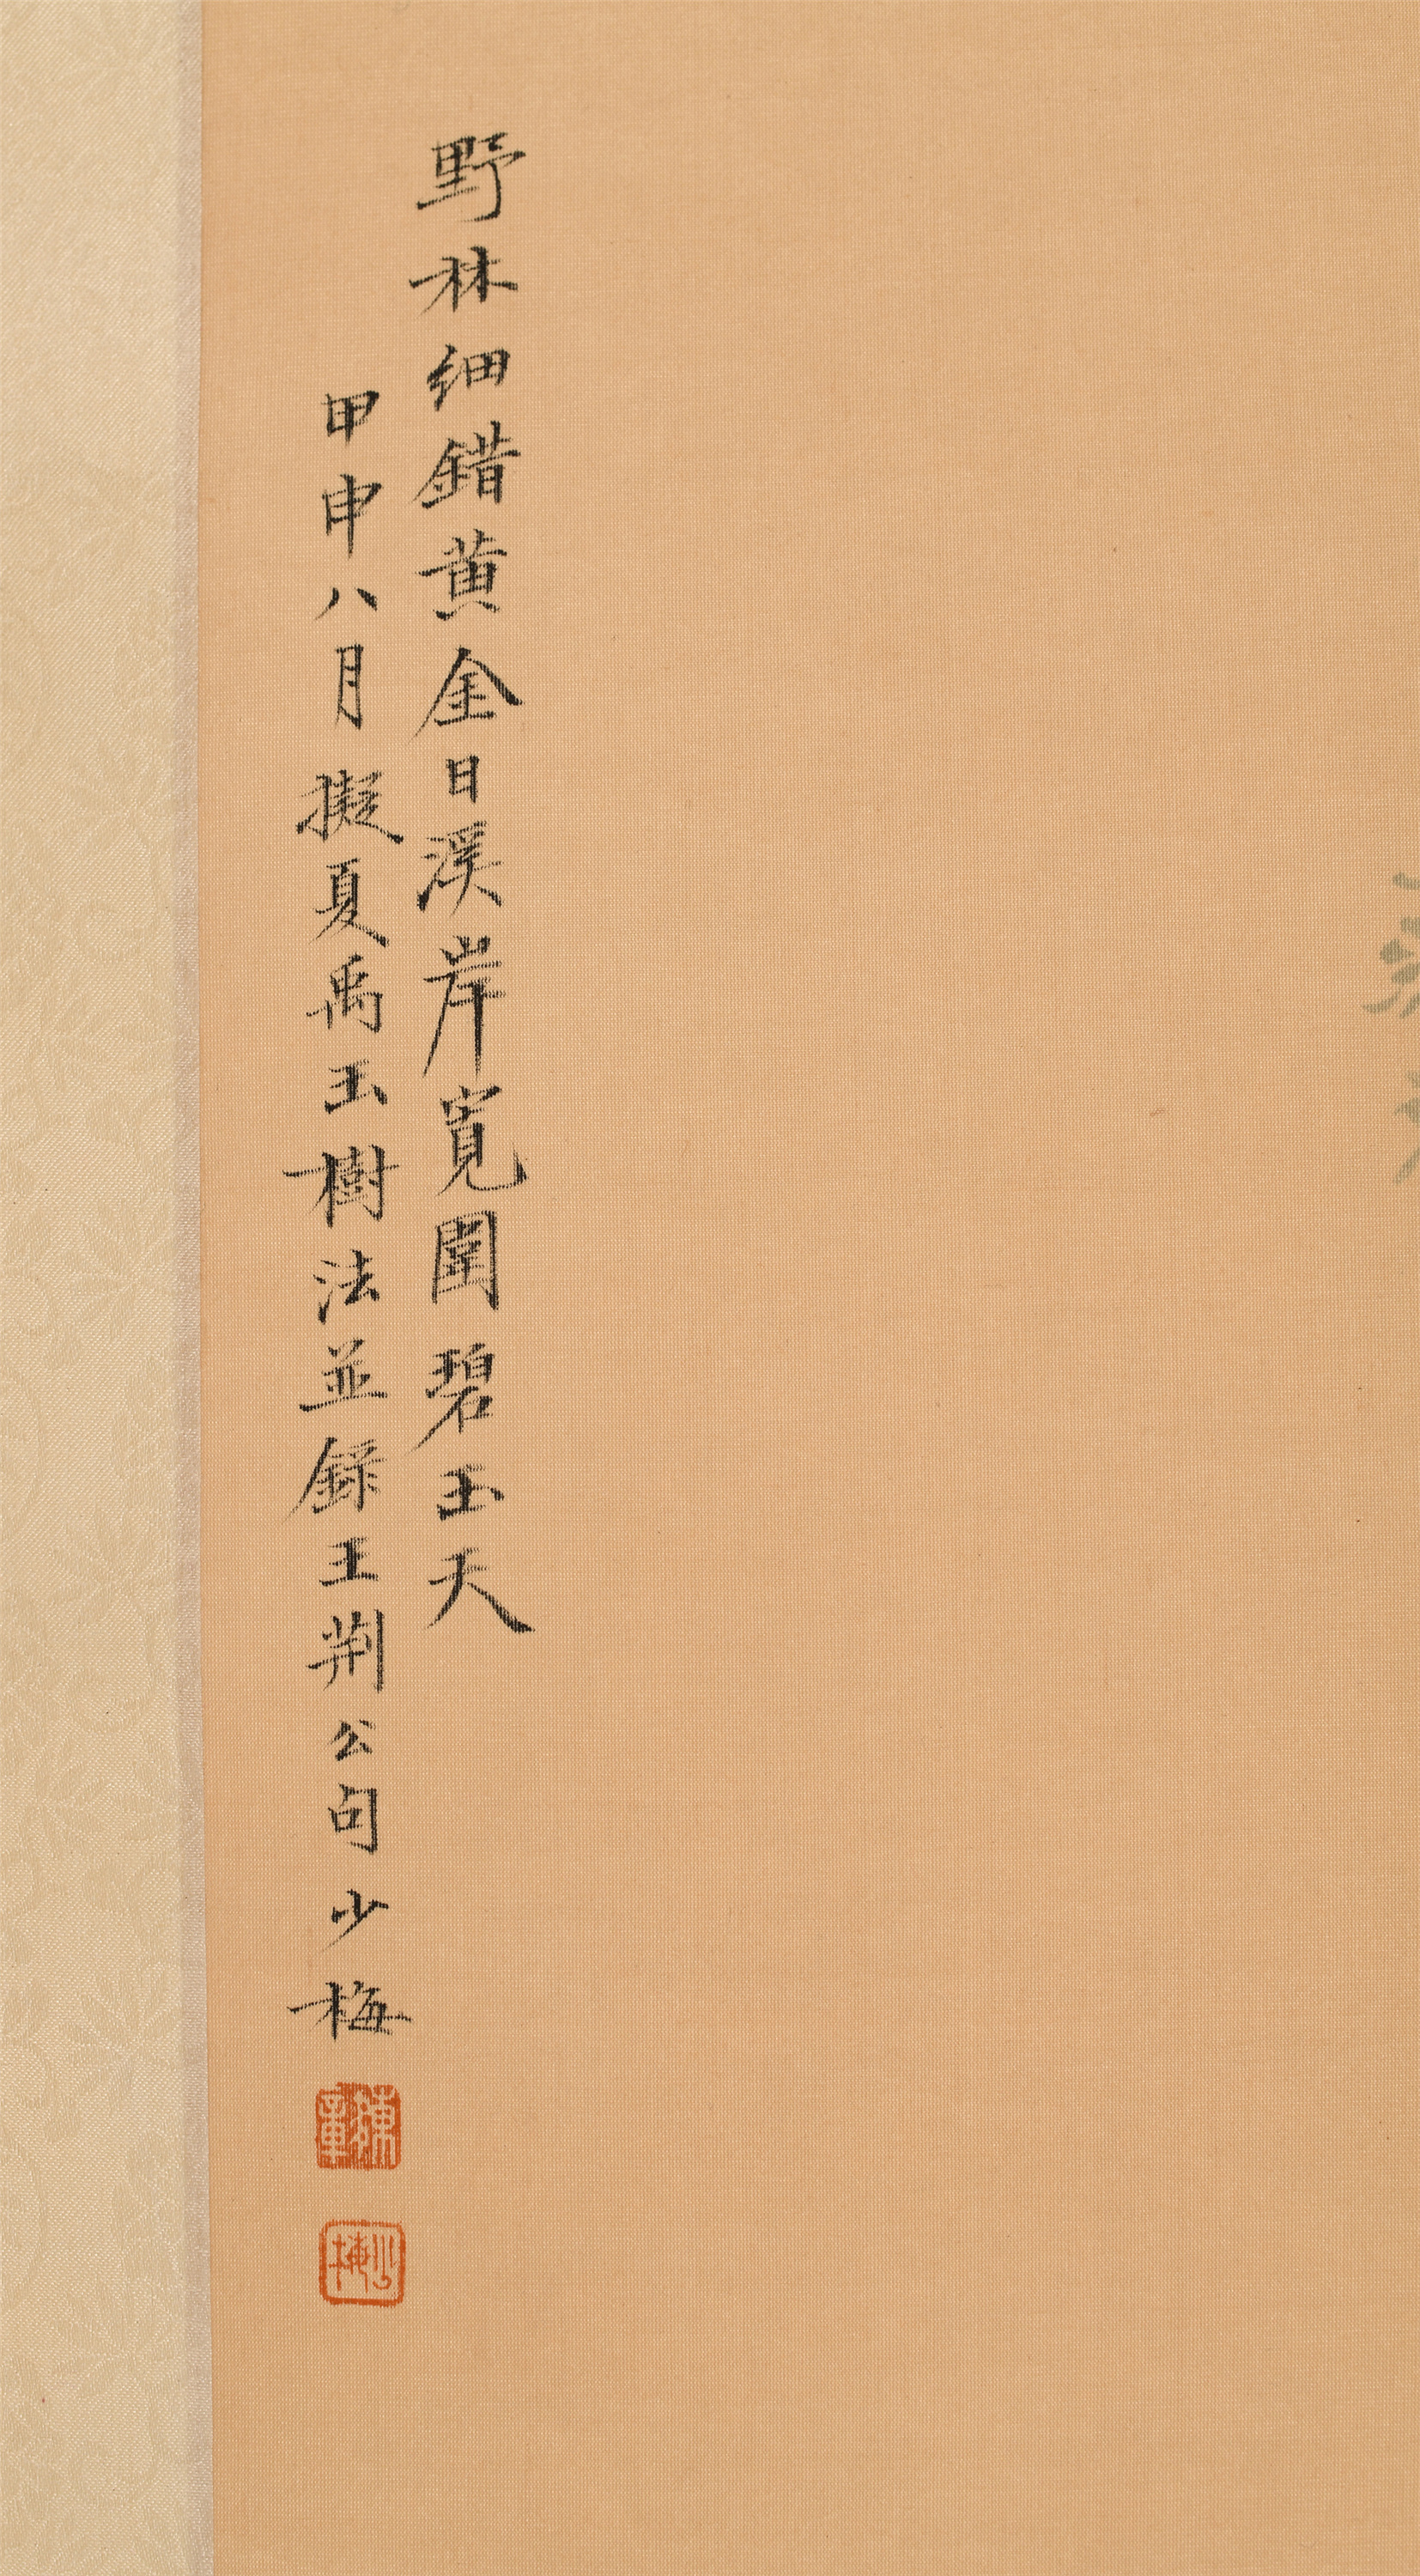 野林細錯黄金日溪岸寬圍碧玉天
甲申八月擬夏禹玉樹法並錄王荆公句少梅
陳
少梅